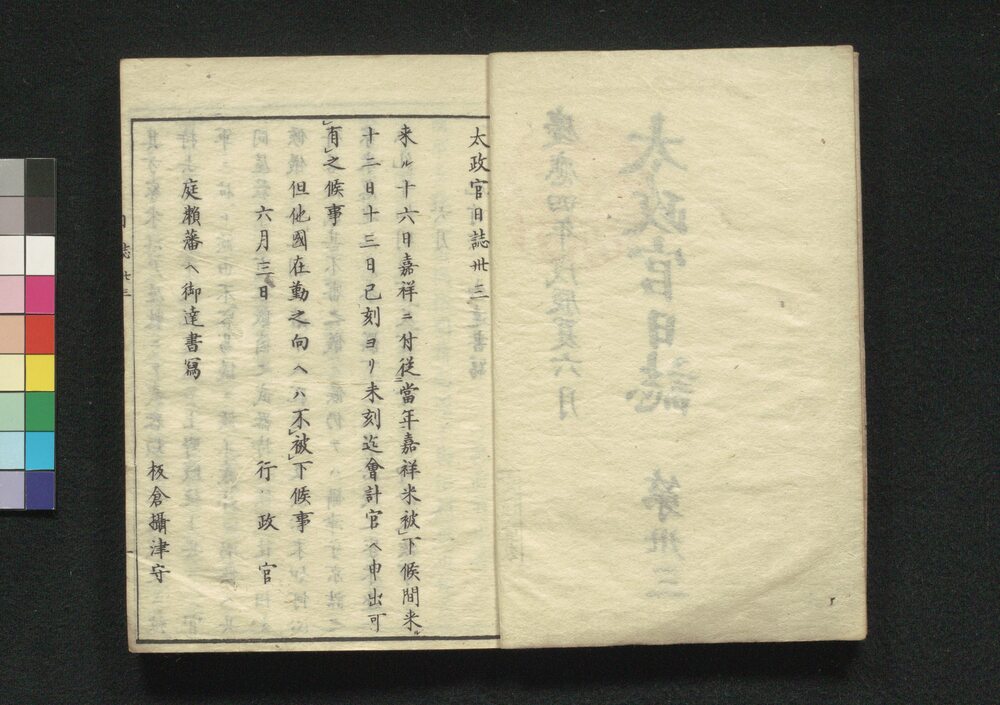 太政官日誌卅三
来ル十六日嘉祥ニ付従當年嘉祥米被下候間来ル
十二日十三日巳刻ヨリ未刻迄會計官ヘ申出可
有之候事
但他國在勤之向ヘハ不被下候事
六月三日 行政官
庭瀬藩ヘ御達書寫
板倉攝津守
日誌卅三